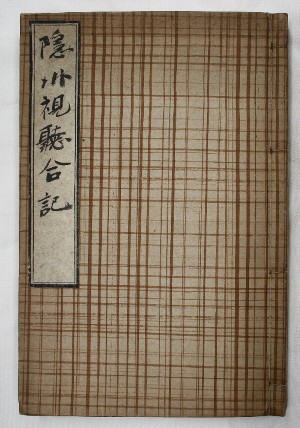 隠州視聽合記